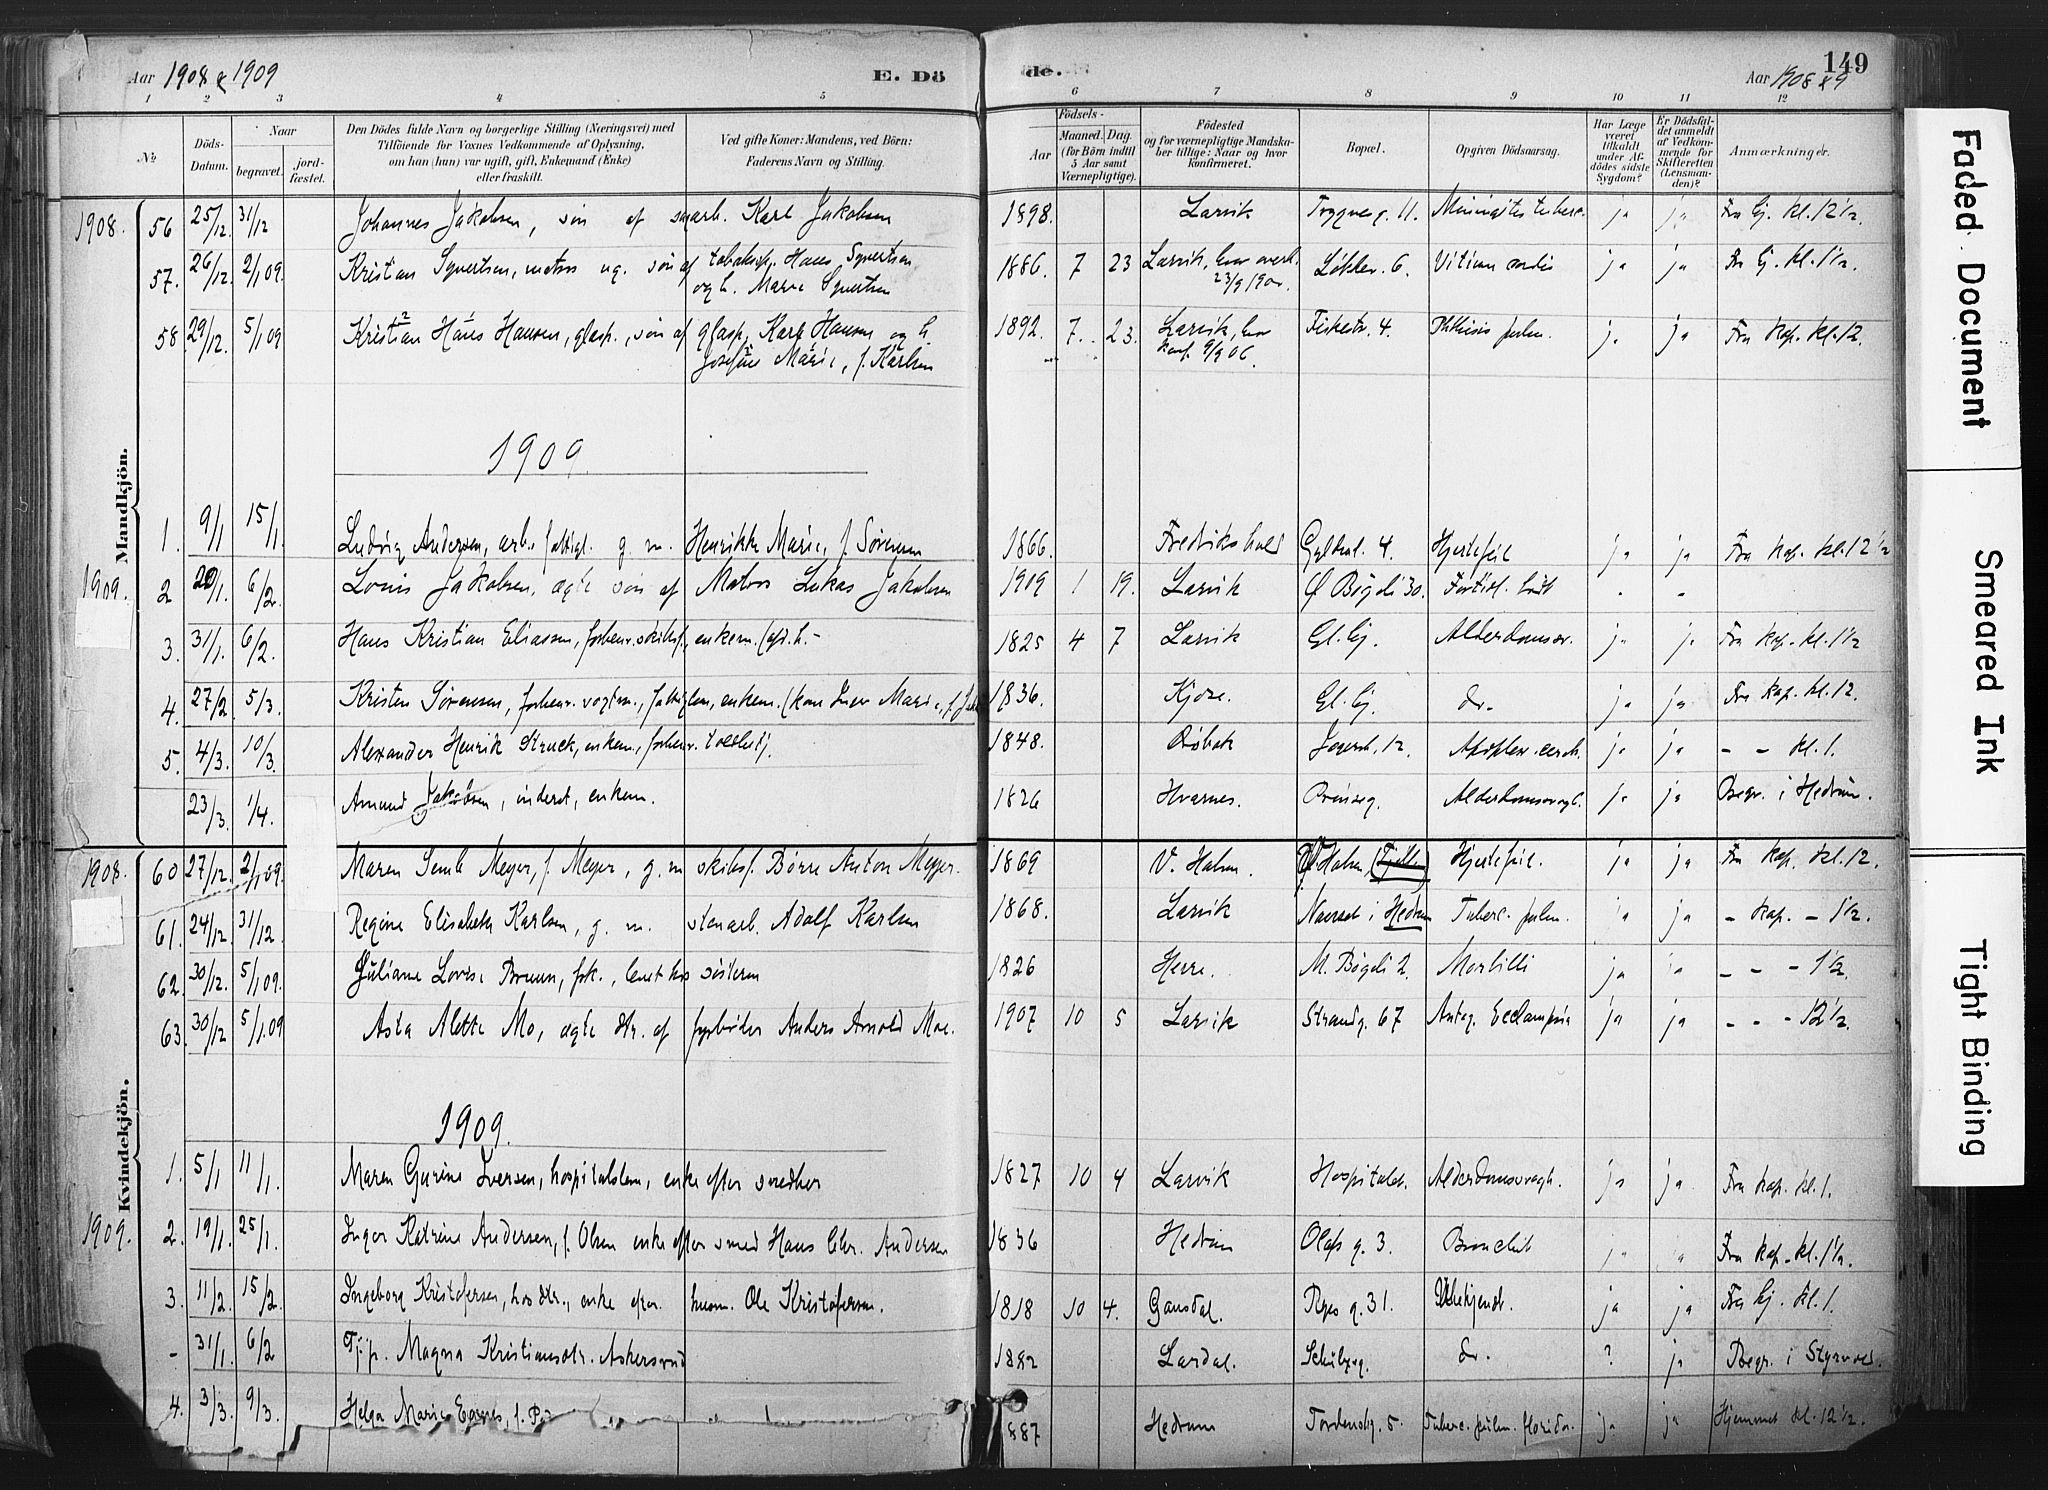 Aar 1908 & 1909
E. Dö
de.
149
Aar 1908 & 9
1 2 3 4 5 6 7 8 9 10 11 12
№
Döds-Datum.
Naar
begravet.
jord-fæstet.
Den Dödes fulde Navn og borgerlige Stilling (Næringsvei) med
Tilföiende for Voxnes Vedkommende af Oplysning,
om han (hun) var ugift, gift, Enkemand (Enke)
eller fraskilt.
Ved gifte Koner: Mandens, ved Börn:
Faderens Navn og Stilling.
Födsels-
Aar
Maaned. Dag.
(for Börn indtil
5 Aar samt
Værnepligtige).
Födested
og for værnepligtige Mandska-
ber tillige: Naar og hvor
konfirmeret.
Bopæl.
Opgiven Dödsaarsag.
Har Læge
været
tilkaldt
under Af-
dödes sidste
Sygdom?
Er Dödsfal-
det anmeldt
af Vedkom-
mende for
Skifteretten
(Lensman-
den)?
Anmærkninger.
Mandkjön.
1908. 56 25/12. 31/12 Johannes Jakobsen, søn af Karl Jakobsen 1898. Larvik 11. ja ja Fra kl. 12½
57. 26/12. 2/1 09. Kristian Syvertsen, matros ug. søn af Hans Syvertsen 1886. 7 23 Larvik, 6. Vitium cordis ja ja kl. 1½.
og h. Marie Syvertsen
58. 29/12. 5/1 09 Kristian Hans Hansen, glasp., søn af glasp. Karl Hansen og h. 1892. 7. 23. Larvik, Fiskestr. 4. Phthisis pulm. ja ja Fra kap. kl. 12.
Josefine Marie, f. Karlsen
konf. 9/9 06.
1909.
1. 9/1 15/1. Ludvig Andersen, arb. fattigl. g. m. Henrikke Marie, f. Sørensen 1866. Fredrikshald 4. Hjertefeil ja ja Fra kap. kl. 12½
1909. 2 20/1. 6/2. Louis Jakobsen, ægte søn af Matros Lukas Jakobsen 1909 1 19. Larvik Ø Bøgeli 30.
3. 31/1. 6/2. Hans Kristian Eliassen, forhenv. skibsf., enkem. 1825 4 7 Larvik Gl. ja ja Fra kap. kl. 1½
4. 27/2 5/3. Kristen Sørensen, forhenv. fattiglem, enkem. 1836. Kjose. Gl. do. ja ja Fra kap. kl. 12.
5. 4/3. 10/3. Alexander Henrik Struck, enkem., forhenv. 1848. Jegersb. 12 ja ja - - kl. 1.
23/3. 1/4. Amund Jakobsen, inderst, enkem. 1826 Hvarnes. Prinseg. ja ja Begr. i Hedrum.
Kvindekjön.
1908. 60 27/12. 2/1 09. Maren Semb Meyer, f. Meyer, g. m skibsf. Børre Anton Meyer. 1869 V. Halsen. Halsen (Tjølling) Hjertefeil. ja ja Fra kap. kl. 12.
61. 24/12. 31/12. Regine Elisabeth Karlsen, g. m. stenarb. Adolf Karlsen 1868. Larvik i Hedrum Tuberc. pulm. ja ja - kap. - 1½.
62. 30/12. 5/1 09. Juliane Lovise Bruun, frk., søsteren 1826 Herre. M. Bøgeli 2. Morbilli ja ja - - - 1½.
63. 30/12 5/1.09 Asta Alette Mo, ægte dtr. af fyrbøder Anders Arnold Moe. 1907 10 5 Larvik Strandg. 67 Eclampsia ja ja - - - 12½.
1909.
1. 5/1 11/1. Maren Gurine Iversen, hospitalslem, enke efter 1827 10 4 Larvik ja ja Fra kap. kl. 1.
1909. 2. 19/1. 25/1. Inger Katrine Andersen, f. Olsen enke efter smed Hans Chr. Andersen 1836 Hedrum Olafs g. 3. ja ja Fra kap. kl. 1½.
3. 11/2. 15/2. Ingeborg Kristofersen, hos dtr., enke efter husm. Ole Kristofersen. 1818 10 4. Ryes g. 31. Ubekjendt. ja ja Fra kl. 1.
- 31/1. 6/2 Tj.p. Magna Kristiansdtr. 1882 Lardal. do. ? ja Begr. i Styrvold.
4. 3/3. 9/3. Helga Marie 887 Hedrum Tordenskg. 5. Tuberc. pulm. florida ja ja Hjemmet kl. 12½.
Faded Document
Smeared Ink
Tight Binding